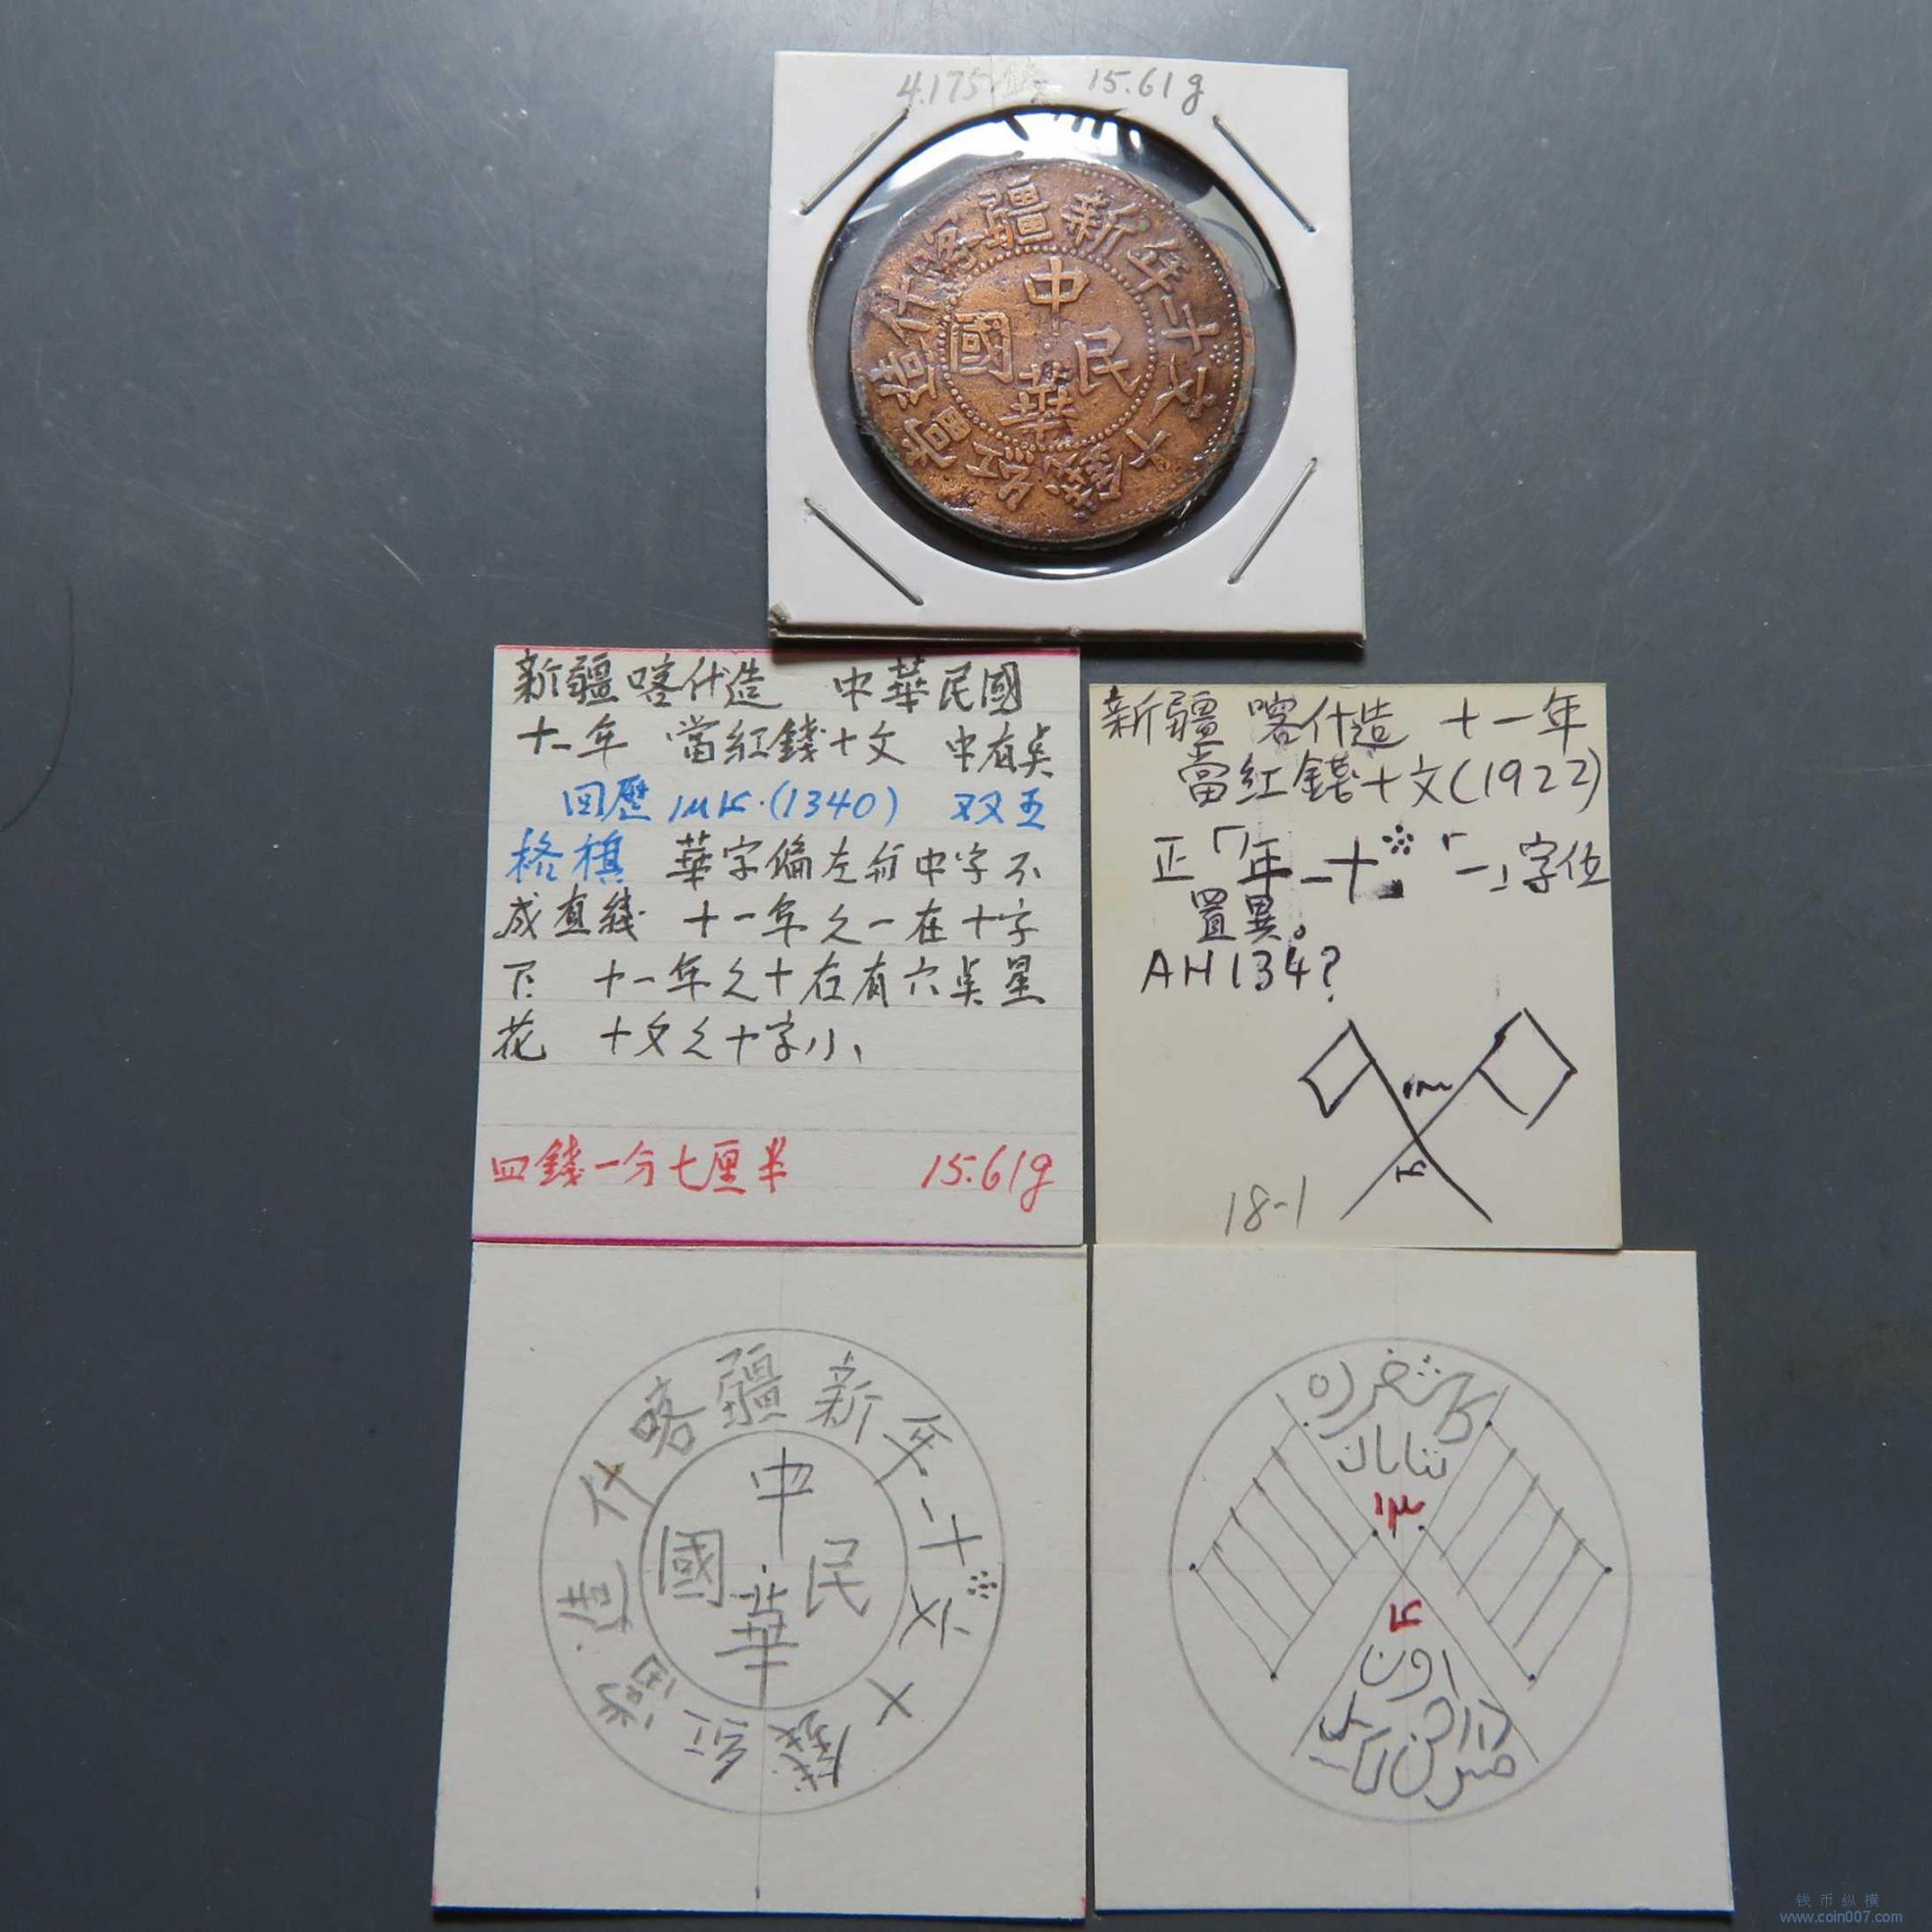 4.175錢 15.61g
新疆喀什造
當紅錢十文
十一年
中華民國
新疆喀什造 中華民國
十一年 當紅錢十文 中有奌
回歷 ١٣٤٠ (1340) 双五
格旗 華字偏左与中字不
成直綫 十一年之一在十字
下 十一年之十右有六奌星
花 十文之十字小
四錢一分七厘半 15.61g
新疆 喀什造 十一年
當紅錢十文(1922)
正「年一十 「一」字位
置異。
AH134?
18-1
新疆喀什造
當紅錢十文
十一年
中華民國
اون
钱币纵横
www.coin007.com